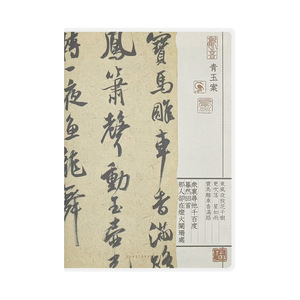 青玉案
東風夜放花千樹
更吹落 星如雨
寶馬雕車香滿路
衆裏尋他千百度
驀然回首
那人卻在燈火闌珊處
寶馬雕車香滿路
鳳簫聲動玉壺
轉一夜魚龍舞